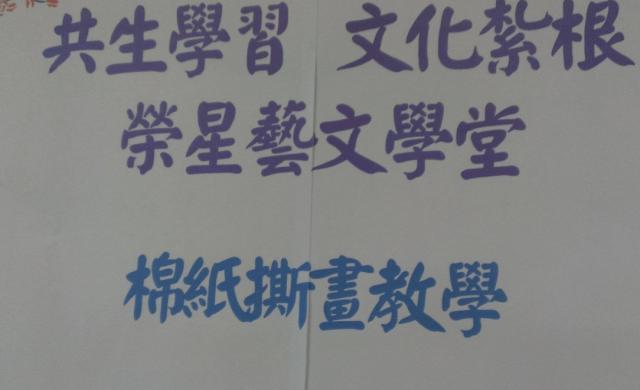 共生學習 文化紮根
榮星藝文學堂
棉紙撕畫教學